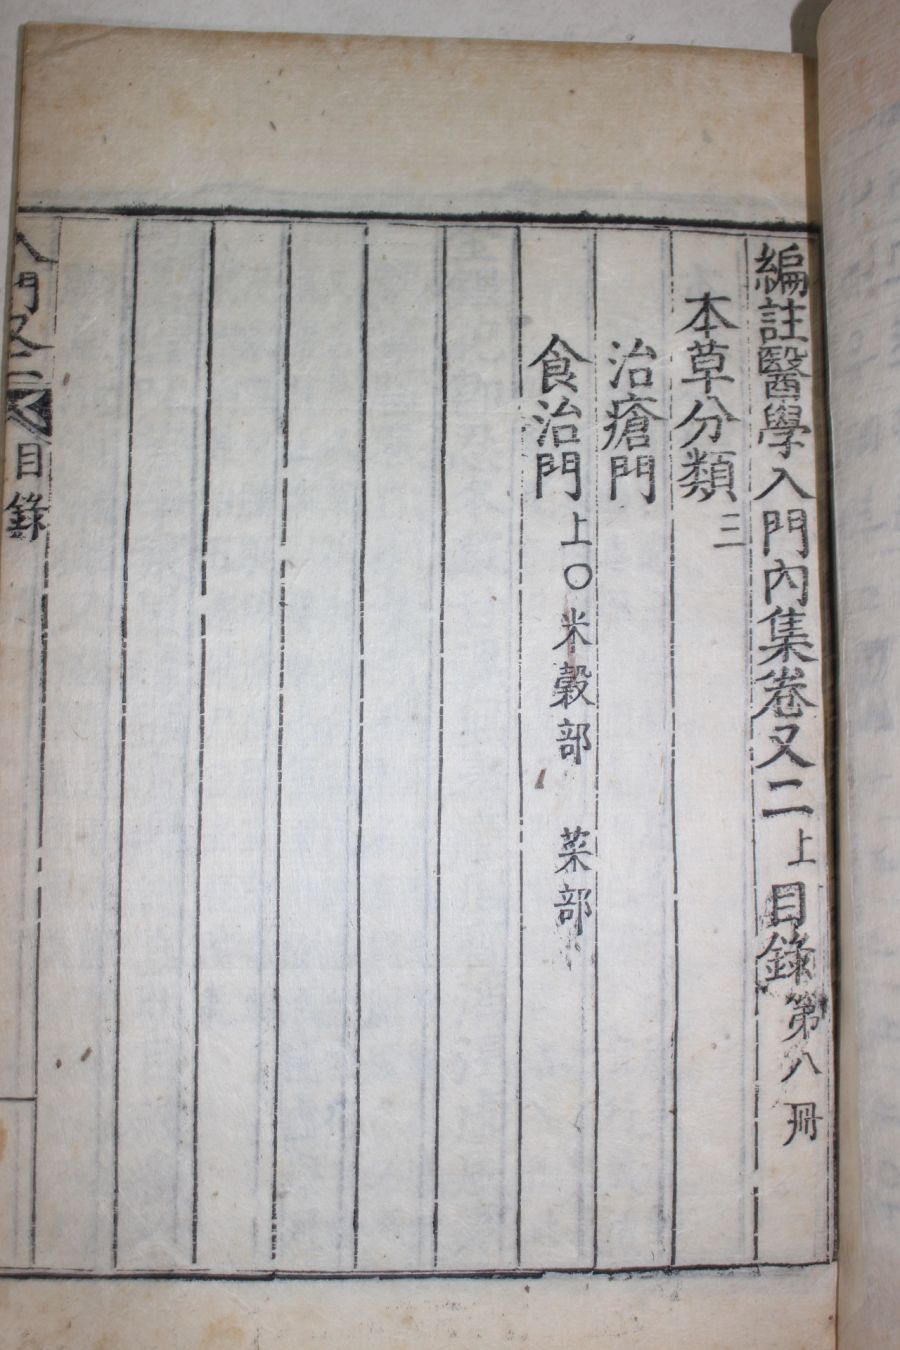 編註醫學入門內集卷又二上目錄第八冊
本草分類三
治瘡門
食治門上〇米穀部 菜部
入門又二 目錄